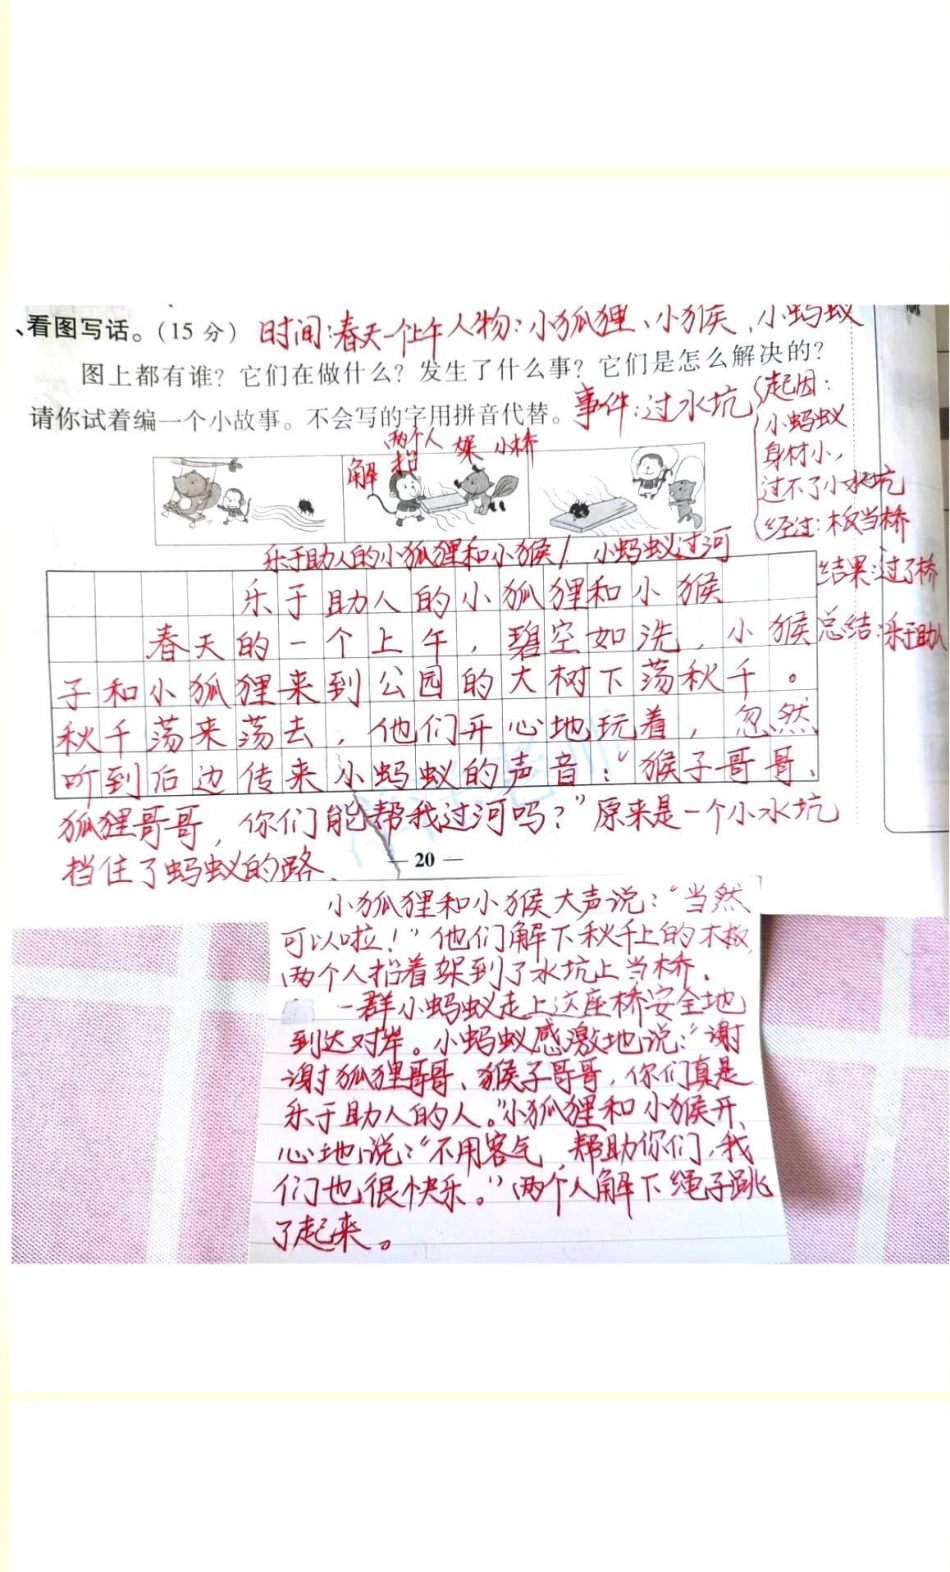 、看图写话。(15 分) 时间:春天一个上午 人物:小狐狸、小猴、小蚂蚁
图上都有谁？它们在做什么？发生了什么事？它们是怎么解决的？
请你试着编一个小故事。不会写的字用拼音代替。 事件:过水坑
起因:
小蚂蚁
身材小,
过不了小水坑
经过:木板当桥
结果:过了桥
总结:乐于助人
两个人 架 小桥
解 抬
乐于助人的小狐狸和小猴/小蚂蚁过河
乐于助人的小狐狸和小猴
春天的一个上午,碧空如洗,小猴
子和小狐狸来到公园的大树下荡秋千。
秋千荡来荡去,他们开心地玩着,忽然
听到后边传来小蚂蚁的声音:“猴子哥哥、
狐狸哥哥,你们能帮我过河吗?”原来是一个小水坑
挡住了蚂蚁的路.
— 20 —
小狐狸和小猴大声说:“当然
可以啦!”他们解下秋千上的木板,
两个人抬着架到了水坑上当桥.
一群小蚂蚁走上这座桥安全地
到达对岸。小蚂蚁感激地说:“谢
谢狐狸哥哥、猴子哥哥,你们真是
乐于助人的人。”小狐狸和小猴开
心地说:“不用客气,帮助你们,我
们也很快乐。”两个人解下绳子跳
了起来。